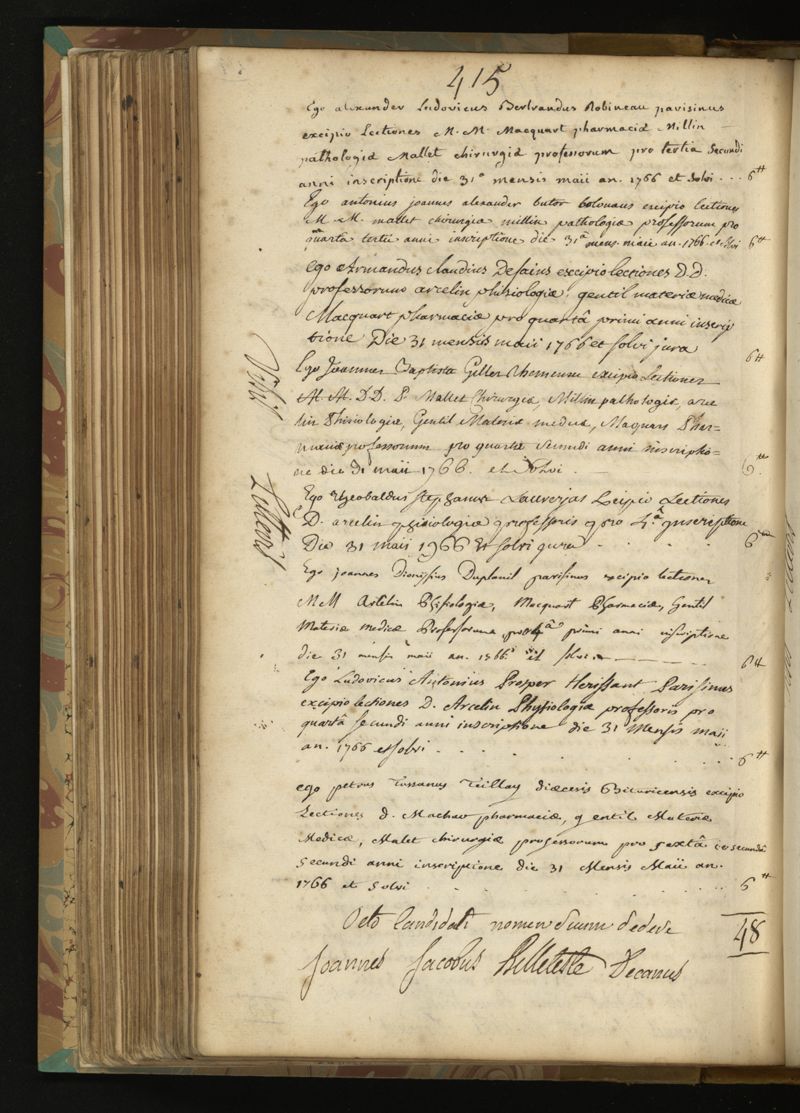 415
Ego alexander Ludovicus Bertrandus Robineau parisinus
excipio Lectiones M. M. Macquart pharmaciæ Millin
pathologiæ Mallet chirurgiæ professorum pro tertia secundi
anni inscriptione die 31a mensis maii an. 1766 et solvi . . . 6tt
Ego antonius joannes alexander butor bolonaus excipio lectiones
M M. mallet chirurgiæ millin pathologiæ professorum pro
quarta tertii anni inscriptione die 31a mens. maii an. 1766 et solvi 6tt
Ego Armandus Claudius Defains excipio lectiones D.D.
professorum arcelin phisiologiæ, gentil materiæ medicæ
Macquart pharmaciæ pro quartâ primi anni inscrip
tione Die 31 mensis maii 1766 et solvi jura 6tt
Ego Joannes Baptista Gillet excipio Lectiones
M. M. D.D. P. Mallet Chirurgiæ, Millin pathologiæ, arce
lin Phisiologiæ, Gentil Materiæ medicæ, Maquart Phar=
maciæ professorum pro quarta secundi anni inscriptio=
ne die 31 maii 1766. et solvi 6tt
Ego theobaldus stephanus Lavverjas Excipio Lectiones
D. arcelin phisiologiæ professoris pro 4.a inscriptione
Die 31 maii 1766 Et solvi jura 6tt
Ego joannes Dionisius Duplanil parisinus excipio lectiones
MM Arcelin Phisiologiæ, Macquart Pharmaciæ, Gentil
Materiæ medicæ Professorum pro 4â primi anni inscriptione
die 31 mensis maii an. 1766 et solvi 6tt
Ego Ludovicus Antonius Prosper Herissant Parisinus
excipio lectiones D. Arcelin Physiologiæ professoris pro
quartâ secundi anni inscriptione die 31 Mensis maii
an. 1766 et solvi . . . . 6tt
ego petrus Tussanus Teillay diæcesis Bituricensis excipio
Lectiones d. Machar pharmaciæ, gentil Materiæ
Medicæ, Malet chirurgiæ professorum pro sextâ
secundi anni inscriptione die 31 Mensis Maii an.
1766 et solvi . . . . 6tt
Octo Candidati nomen suum dedere 48
Joannes Jacobus Belleteste Decanus